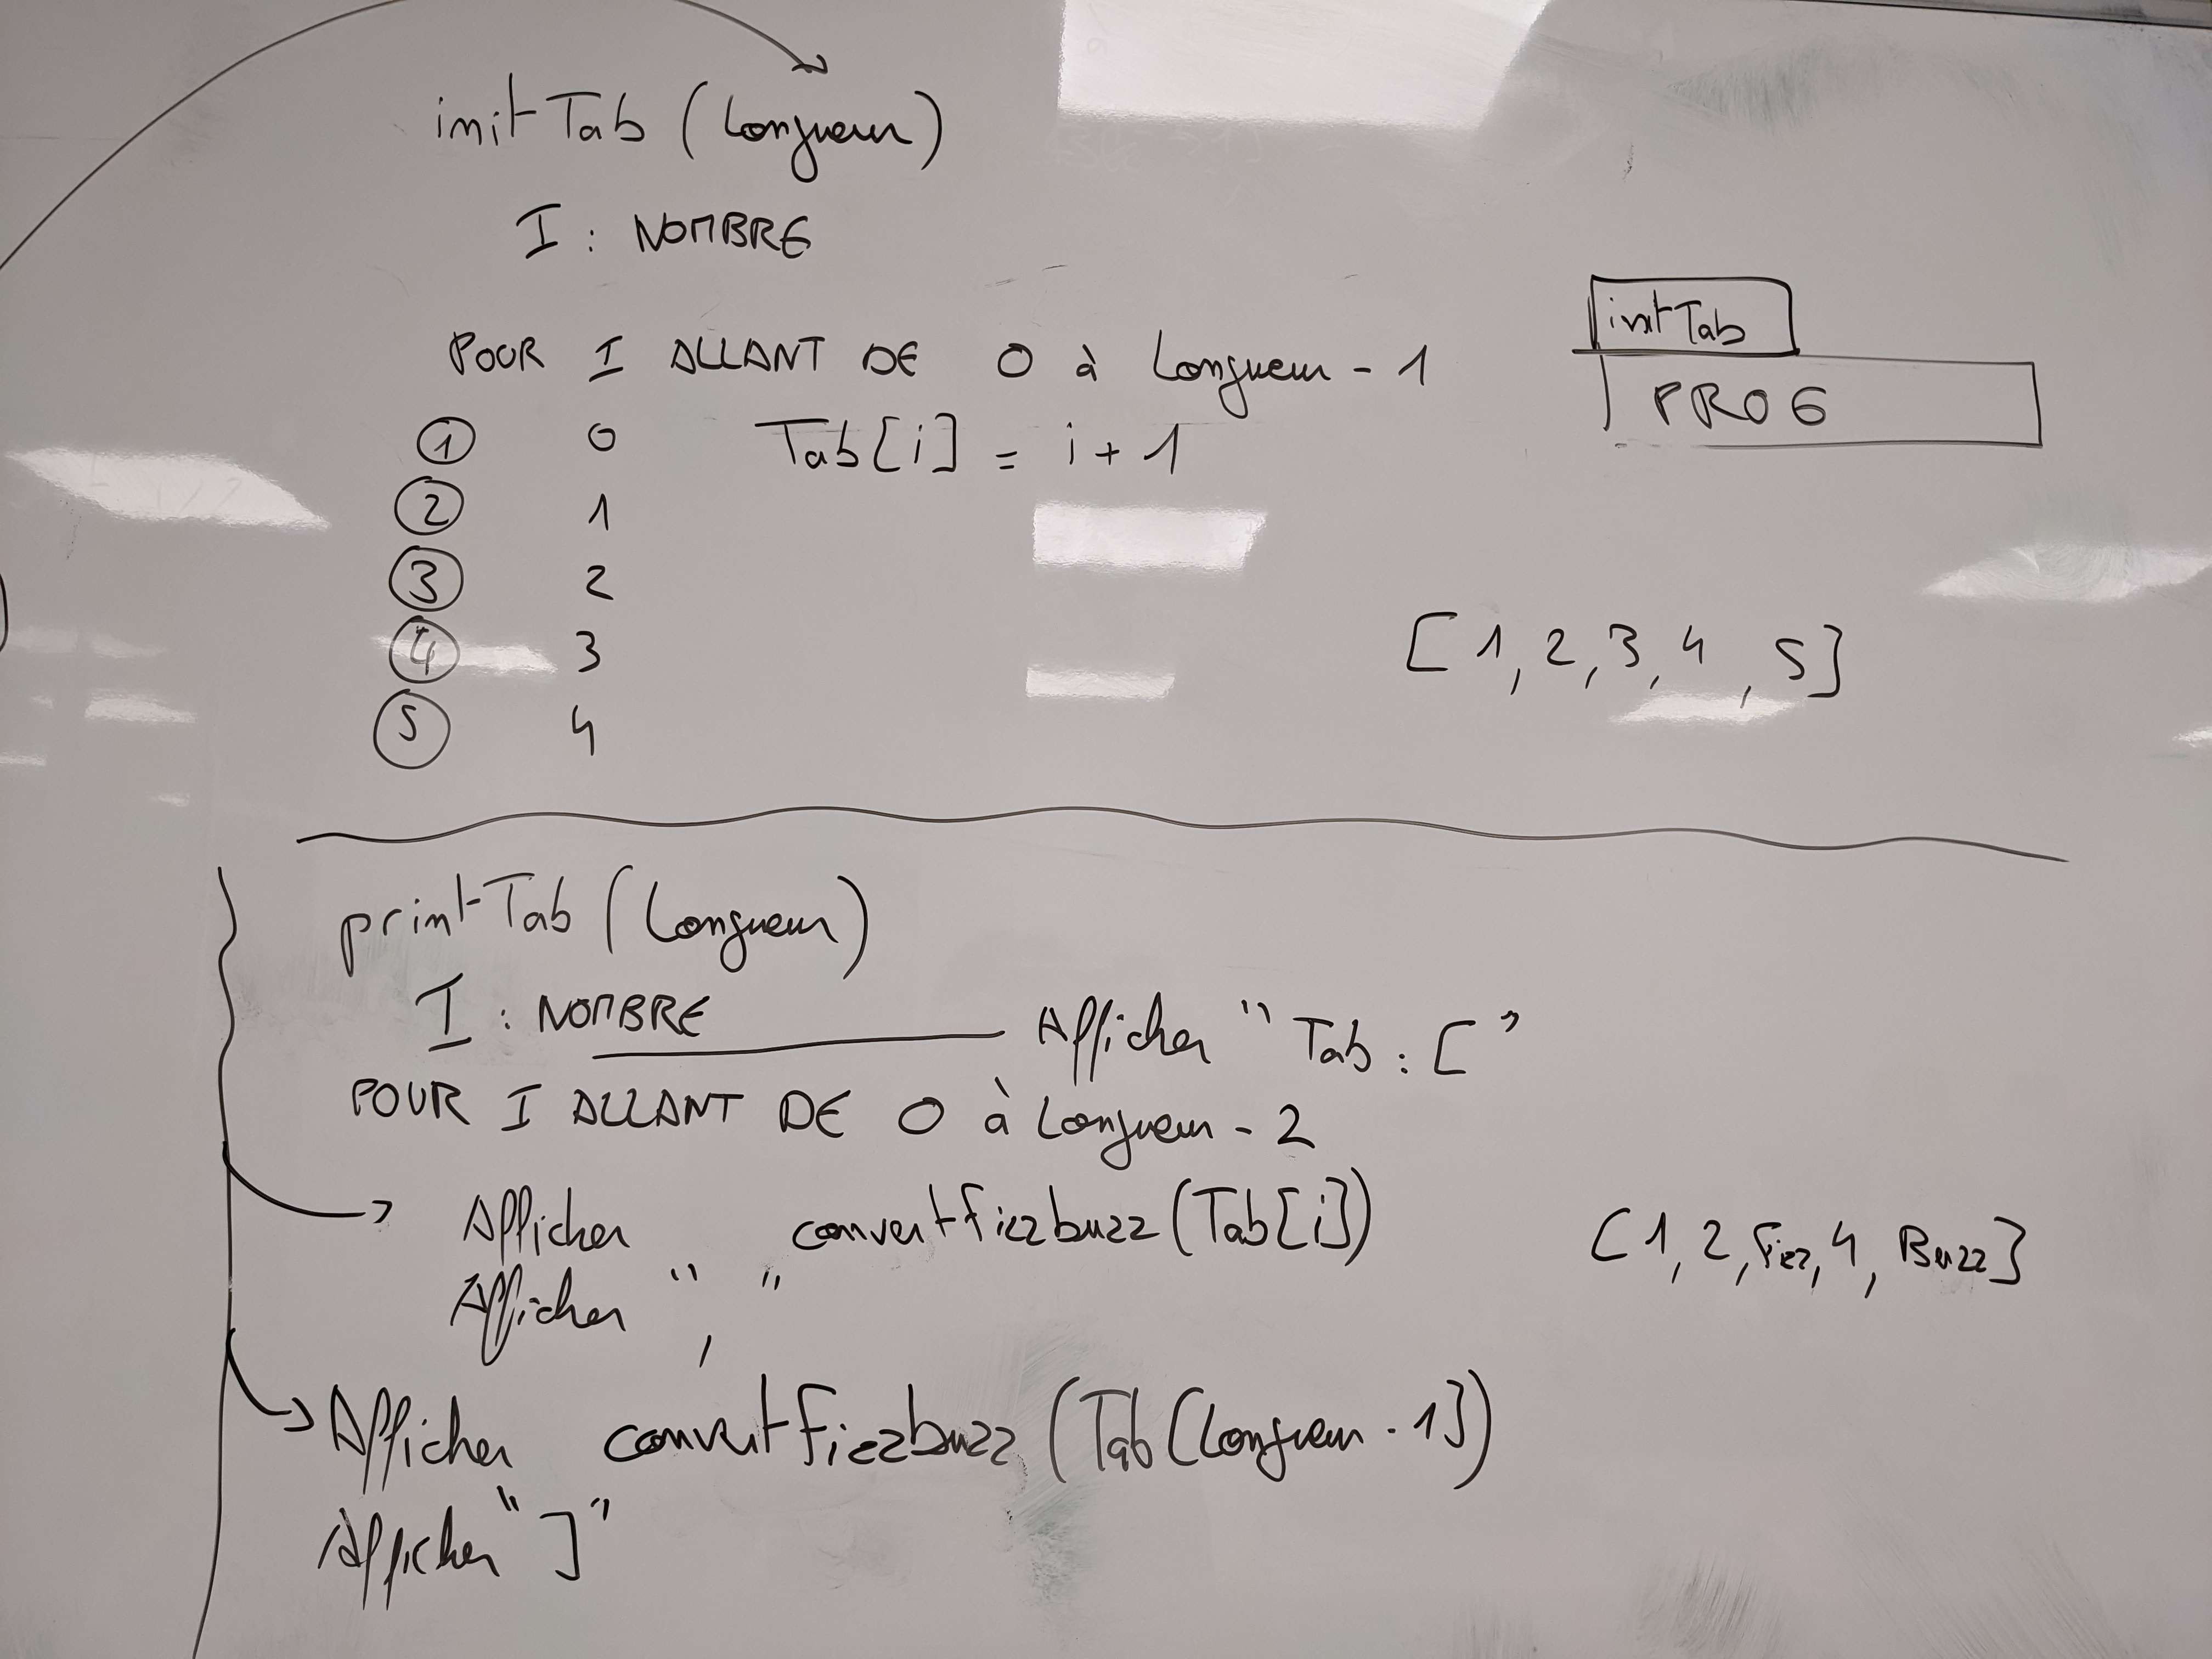 initTab (Longueur)
I : NOMBRE
POUR I ALLANT DE 0 à Longueur - 1
① 0 Tab[i] = i + 1
② 1
③ 2
④ 3
⑤ 4
initTab
PROG
[1, 2, 3, 4, 5]
printTab (Longueur)
I : NOMBRE
Afficher "Tab : ["
POUR I ALLANT DE 0 à Longueur - 2
Afficher convertfizzbuzz (Tab[i])
Afficher ", "
[1, 2, Fizz, 4, Buzz]
Afficher convertfizzbuzz (Tab[Longueur - 1])
Afficher "]"